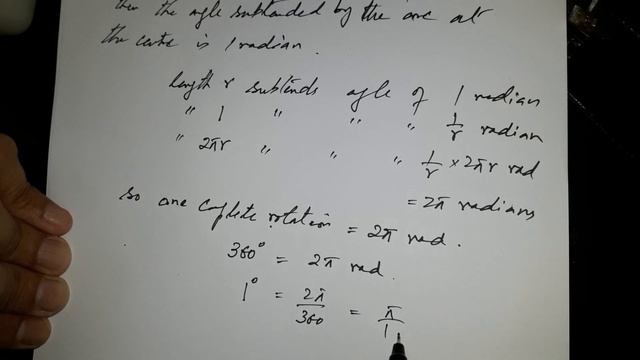 then the angle subtended by the arc at
the centre is 1 radian.
length r subtends agle of 1 radian
" 1 " " " 1/r radian
" 2πr " " " 1/r × 2πr rad
= 2π radians
so one coplete rotation = 2π rad.
360° = 2π rad.
1° = 2π/360 = π/1